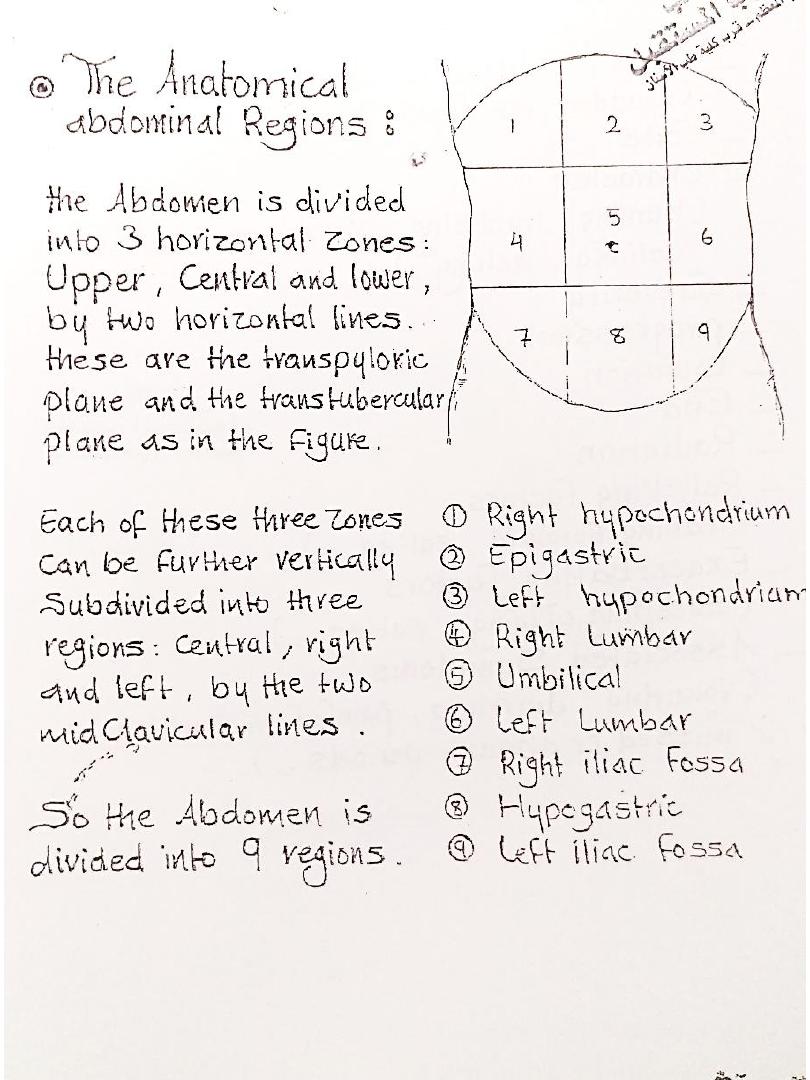 The Anatomical
abdominal Regions :
the Abdomen is divided
into 3 horizontal Zones :
Upper , Central and lower ,
by two horizontal lines .
these are the transpyloric
plane and the transtubercular
plane as in the Figure .
Each of these three Zones
Can be further vertically
Subdivided into three
regions : Central , right
and left , by the two
mid Clavicular lines .
So the Abdomen is
divided into 9 regions .
المستقبل
قرب كلية طب الأسنان
1 2 3
4 5 6
7 8 9
① Right hypochondrium
② Epigastric
③ Left hypochondrium
④ Right Lumbar
⑤ Umbilical
⑥ Left Lumbar
⑦ Right iliac Fossa
⑧ Hypogastric
⑨ Left iliac Fossa